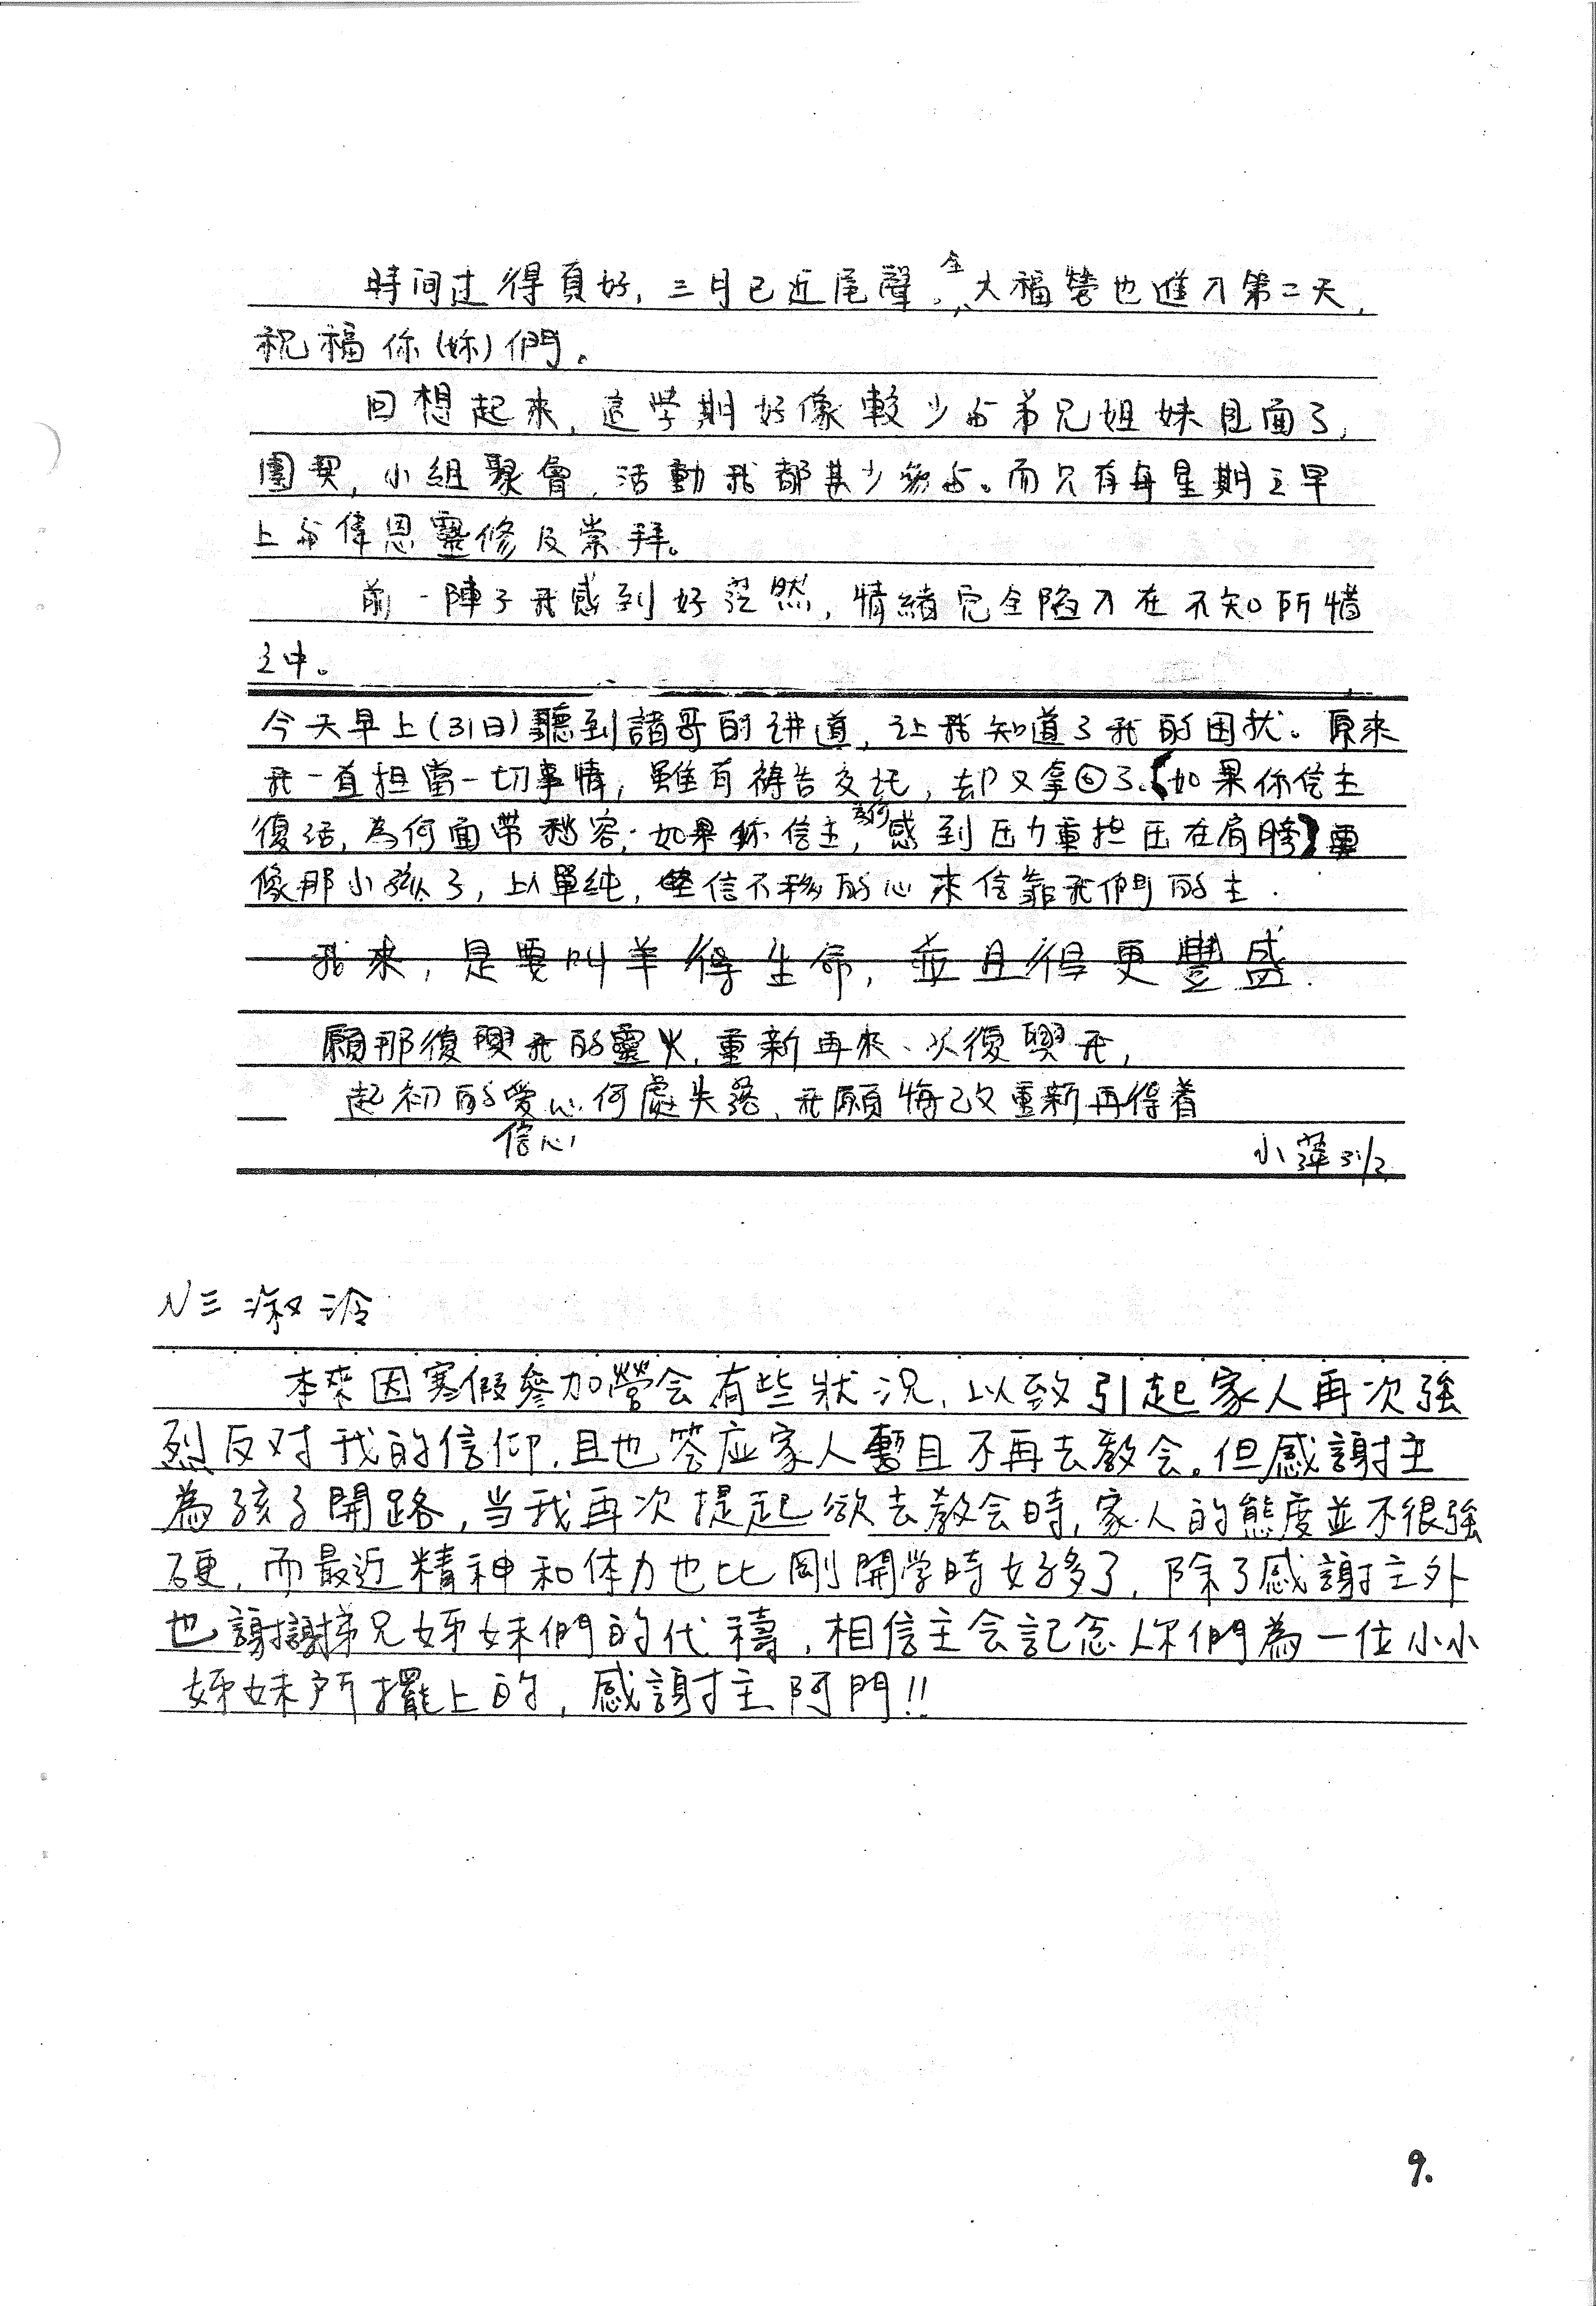 時间过得真好, 三月已近尾聲, 全大福營也進入第二天,
祝福你(妳)們。
回想起來, 這学期好像較少与弟兄姐妹見面了,
團契, 小組聚會, 活動我都甚少參与。而只有每星期三早
上与偉恩靈修及崇拜。
前一陣子我感到好茫然, 情緒完全陷入在不知所措
之中。
今天早上(31日)聽到諸哥的讲道, 让我知道了我的困扰。原來
我一直担當一切事情, 雖有禱告交託, 却又拿回了.【如果你信主
復活, 為何面帶愁容; 如果你信主, 為何感到压力重担压在肩膀】要
像那小孩子, 以單純, 堅信不移的心來信靠我們的主.
我來, 是要叫羊得生命, 並且得更豐盛.
願那復興我的靈火, 重新再來、以復興我,
起初的愛心何處失落, 我願悔改重新再得着
信心
小萍 31/3
N三 淑
本來因寒假參加營会有些狀況, 以致引起家人再次強
烈反对我的信仰, 且也答应家人暫且不再去教会。但感謝主
為孩子開路, 当我再次提起欲去教会時, 家人的態度並不很強
硬, 而最近精神和体力也比剛開学時好多了, 除了感謝主外
也謝謝弟兄姊妹們的代禱, 相信主会記念你們為一位小小
姊妹所擺上的, 感謝主 阿門!!
9.